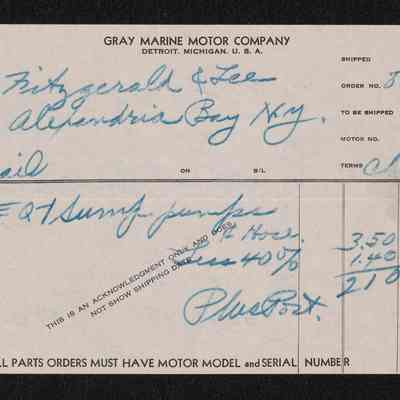 GRAY MARINE MOTOR COMPANY
DETROIT. MICHIGAN. U. S. A.
SHIPPED
Fitzgerald & Lee
ORDER NO.
Alexandria Bay N.Y.
TO BE SHIPPED
MOTOR NO.
ail
ON
B/L
TERMS
Sump pumps
Hose
3.50
Less 40%
1.40
2 10
THIS IS AN ACKNOWLEDGMENT ONLY AND DOES
NOT SHOW SHIPPING DATE
Plus Post.
LL PARTS ORDERS MUST HAVE MOTOR MODEL and SERIAL NUMBER